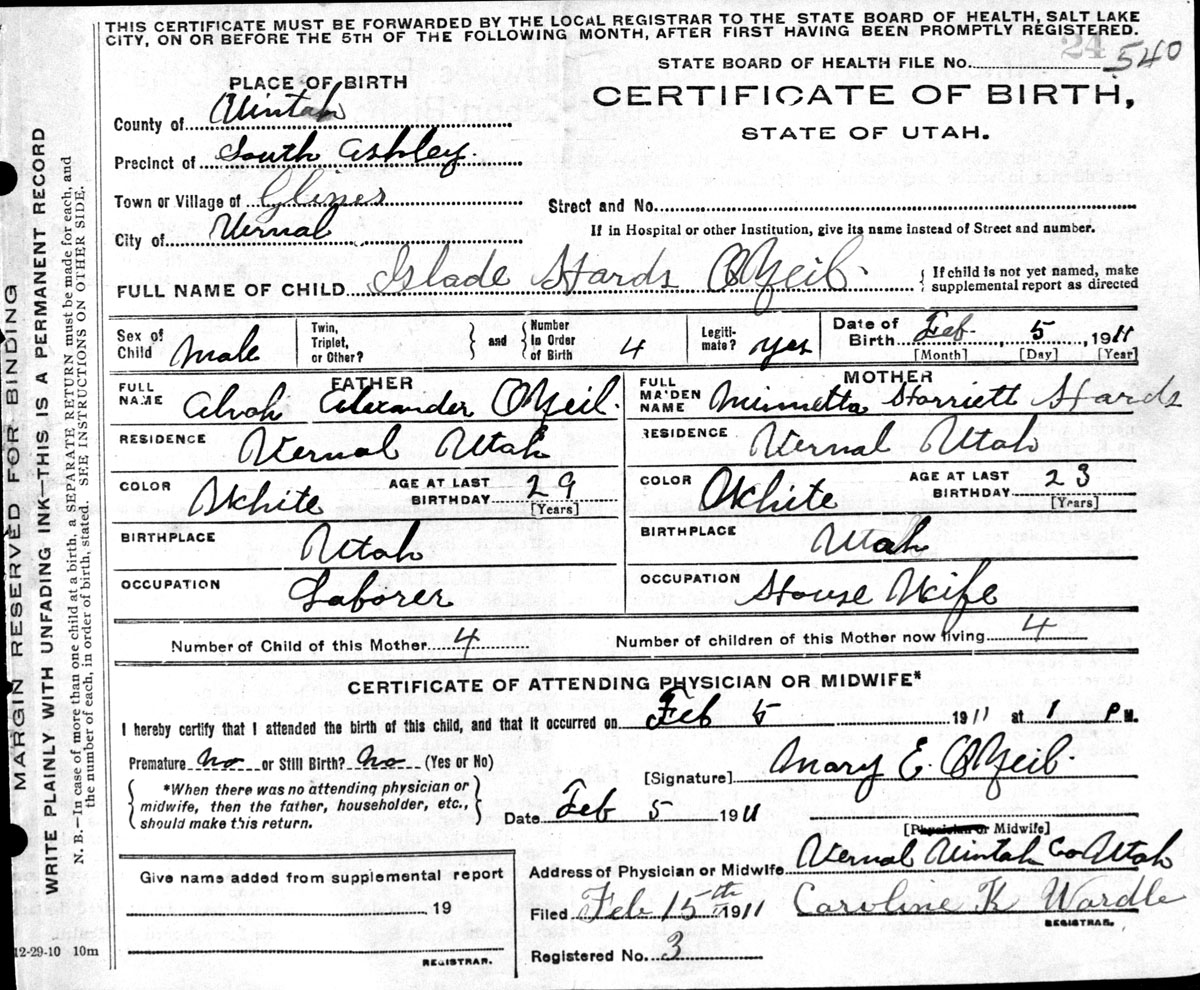 THIS CERTIFICATE MUST BE FORWARDED BY THE LOCAL REGISTRAR TO THE STATE BOARD OF HEALTH, SALT LAKE
CITY, ON OR BEFORE THE 5TH OF THE FOLLOWING MONTH, AFTER FIRST HAVING BEEN PROMPTLY REGISTERED.
24
STATE BOARD OF HEALTH FILE No. 540
PLACE OF BIRTH
CERTIFICATE OF BIRTH,
STATE OF UTAH.
County of Uintah
Precinct of South Ashley.
Town or Village of Glines
Street and No.
City of Vernal
If in Hospital or other Institution, give its name instead of Street and number.
FULL NAME OF CHILD Slade Hards O'Neil.
If child is not yet named, make
supplemental report as directed
Sex of Child Male
Twin, Triplet, or Other?
and
Number In Order of Birth 4
Legiti-mate? yes
Date of Birth Feb. 5, 1911
[Month] [Day] [Year]
FATHER
FULL NAME Alvah Alexander O'Neil.
RESIDENCE Vernal Utah
COLOR White AGE AT LAST BIRTHDAY 29 [Years]
BIRTHPLACE Utah
OCCUPATION Laborer
MOTHER
FULL MAIDEN NAME Minnetta Harriett Hards
RESIDENCE Vernal Utah
COLOR White AGE AT LAST BIRTHDAY 23 [Years]
BIRTHPLACE Utah
OCCUPATION House Wife
Number of Child of this Mother 4 Number of children of this Mother now living 4
CERTIFICATE OF ATTENDING PHYSICIAN OR MIDWIFE*
I hereby certify that I attended the birth of this child, and that it occurred on Feb 5 1911 at 1 P M.
Premature No or Still Birth? No (Yes or No)
[Signature] Mary E. O'Neil.
*When there was no attending physician or
midwife, then the father, householder, etc.,
should make this return.
Date Feb 5 1911
[Physician or Midwife]
Address of Physician or Midwife Vernal Uintah Co Utah
Give name added from supplemental report
19
REGISTRAR.
Filed Feb 15th 1911 Caroline K Wardle
REGISTRAR.
Registered No. 3
12-29-10 10m
MARGIN RESERVED FOR BINDING
WRITE PLAINLY WITH UNFADING INK—THIS IS A PERMANENT RECORD
N. B.—In case of more than one child at a birth, a SEPARATE RETURN must be made for each, and
the number of each, in order of birth, stated. SEE INSTRUCTIONS ON OTHER SIDE.